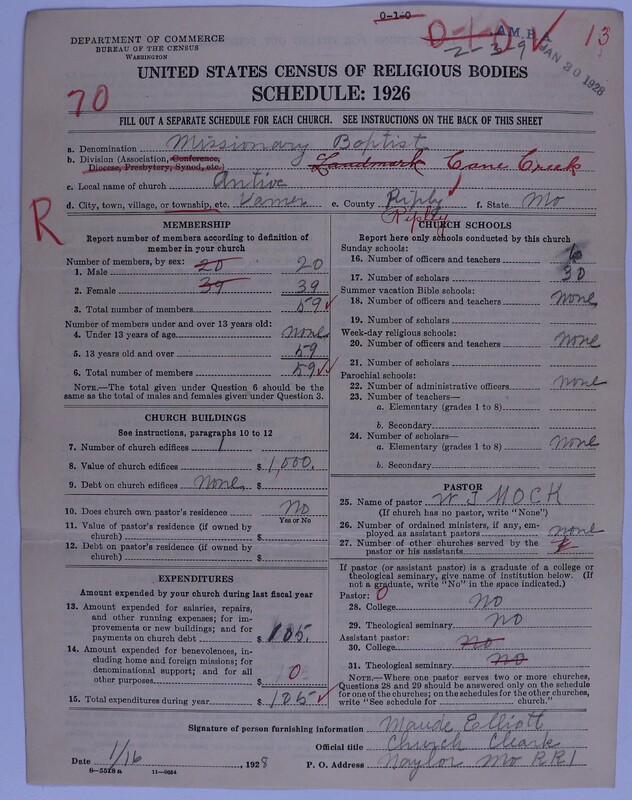 0-1-0
0-1-0 A M B A 13
2-3-9
JAN 30 1928
DEPARTMENT OF COMMERCE
BUREAU OF THE CENSUS
WASHINGTON
UNITED STATES CENSUS OF RELIGIOUS BODIES
SCHEDULE: 1926
70
FILL OUT A SEPARATE SCHEDULE FOR EACH CHURCH. SEE INSTRUCTIONS ON THE BACK OF THIS SHEET
a. Denomination Missionary Baptist
b. Division (Association, Conference, Diocese, Presbytery, Synod, etc.) Landmark Cane Creek
c. Local name of church Antive
d. City, town, village, or township, etc. Varner e. County Riply f. State Mo
Ripley
R
MEMBERSHIP
Report number of members according to definition of
member in your church
Number of members, by sex:
1. Male 20 20
2. Female 39 39
3. Total number of members 59
Number of members under and over 13 years old:
4. Under 13 years of age none
5. 13 years old and over 59
6. Total number of members 59
NOTE.—The total given under Question 6 should be
same as the total of males and females given under Question 3.
CHURCH BUILDINGS
See instructions, paragraphs 10 to 12
7. Number of church edifices 1
8. Value of church edifices $ 1,000.
9. Debt on church edifices None $
10. Does church own pastor's residence No
Yes or No
11. Value of pastor's residence (if owned by
church) $
12. Debt on pastor's residence (if owned by
church) $
EXPENDITURES
Amount expended by your church during last fiscal year
13. Amount expended for salaries, repairs,
and other running expenses; for im-
provements or new buildings; and for
payments on church debt $ 105.
14. Amount expended for benevolences, in-
cluding home and foreign missions; for
denominational support; and for all
other purposes $ 0
15. Total expenditures during year $ 105
CHURCH SCHOOLS
Report here only schools conducted by this church
Sunday schools:
16. Number of officers and teachers 6
17. Number of scholars 30
Summer vacation Bible schools:
18. Number of officers and teachers none
19. Number of scholars
Week-day religious schools:
20. Number of officers and teachers none
21. Number of scholars
Parochial schools:
22. Number of administrative officers none
23. Number of teachers—
a. Elementary (grades 1 to 8)
b. Secondary
24. Number of scholars—
a. Elementary (grades 1 to 8) none
b. Secondary
PASTOR
25. Name of pastor W J MOCK
(If church has no pastor, write "None")
26. Number of ordained ministers, if any, em-
ployed as assistant pastors none
27. Number of other churches served by the
pastor or his assistants
If pastor (or assistant pastor) is a graduate of a college or
theological seminary, give name of institution below. (If
not a graduate, write "No" in the space indicated.)
Pastor: 0
28. College No
29. Theological seminary No
Assistant pastor:
30. College No
31. Theological seminary no
NOTE.—Where one pastor serves two or more churches,
Questions 28 and 29 should be answered only on the schedule
for one of the churches; on the schedules for the other churches,
write "See schedule for church."
Signature of person furnishing information Maude Elliott
Official title Church Cleark
Date 1/16, 1928 P. O. Address Naylor Mo RR1
8-5518a 11-9654